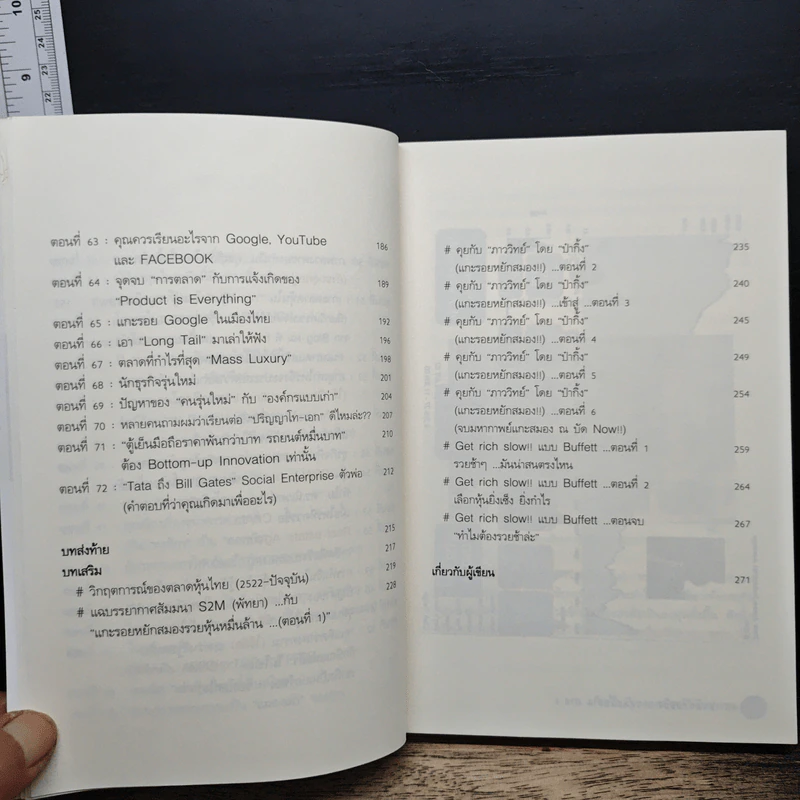 ตอนที่ 63 : คุณควรเรียนอะไรจาก Google, YouTube 186
และ FACEBOOK
ตอนที่ 64 : จุดจบ "การตลาด" กับการแจ้งเกิดของ 189
"Product is Everything"
ตอนที่ 65 : แกะรอย Google ในเมืองไทย 192
ตอนที่ 66 : เอา "Long Tail" มาเล่าให้ฟัง 196
ตอนที่ 67 : ตลาดที่กำไรที่สุด "Mass Luxury" 198
ตอนที่ 68 : นักธุรกิจรุ่นใหม่ 201
ตอนที่ 69 : ปัญหาของ "คนรุ่นใหม่" กับ "องค์กรแบบเก่า" 204
ตอนที่ 70 : หลายคนถามผมว่าเรียนต่อ "ปริญญาโท-เอก" ดีไหมล่ะ?? 207
ตอนที่ 71 : "ตู้เย็นมือถือราคาพันกว่าบาท รถยนต์หมื่นบาท" 210
ต้อง Bottom-up Innovation เท่านั้น
ตอนที่ 72 : "Tata ถึง Bill Gates" Social Enterprise ตัวพ่อ 212
(คำตอบที่ว่าคุณเกิดมาเพื่ออะไร)
บทส่งท้าย 215
บทเสริม 217
# วิกฤตการณ์ของตลาดหุ้นไทย (2522-ปัจจุบัน) 219
# แฉบรรยากาศสัมมนา S2M (พัทยา) ...กับ 228
"แกะรอยหยักสมองรวยหุ้นหมื่นล้าน ...(ตอนที่ 1)"
# คุยกับ "ภาววิทย์" โดย "ป๋ากิ้ง" 235
(แกะรอยหยักสมอง!!) ...ตอนที่ 2
# คุยกับ "ภาววิทย์" โดย "ป๋ากิ้ง" 240
(แกะรอยหยักสมอง!!) ...เข้าสู่ ...ตอนที่ 3
# คุยกับ "ภาววิทย์" โดย "ป๋ากิ้ง" 245
(แกะรอยหยักสมอง!!) ...ตอนที่ 4
# คุยกับ "ภาววิทย์" โดย "ป๋ากิ้ง" 249
(แกะรอยหยักสมอง!!) ...ตอนที่ 5
# คุยกับ "ภาววิทย์" โดย "ป๋ากิ้ง" 254
(แกะรอยหยักสมอง!!) ...ตอนที่ 6
(จบมหากาพย์แกะสมอง ณ บัด Now!!)
# Get rich slow!! แบบ Buffett ...ตอนที่ 1 259
รวยช้าๆ ...มันน่าสนตรงไหน
# Get rich slow!! แบบ Buffett ...ตอนที่ 2 264
เลือกหุ้นยิ่งเซ็ง ยิ่งกำไร
# Get rich slow!! แบบ Buffett ...ตอนจบ 267
"ทำไมต้องรวยช้าล่ะ"
เกี่ยวกับผู้เขียน 271
10
9
25
24
23
22